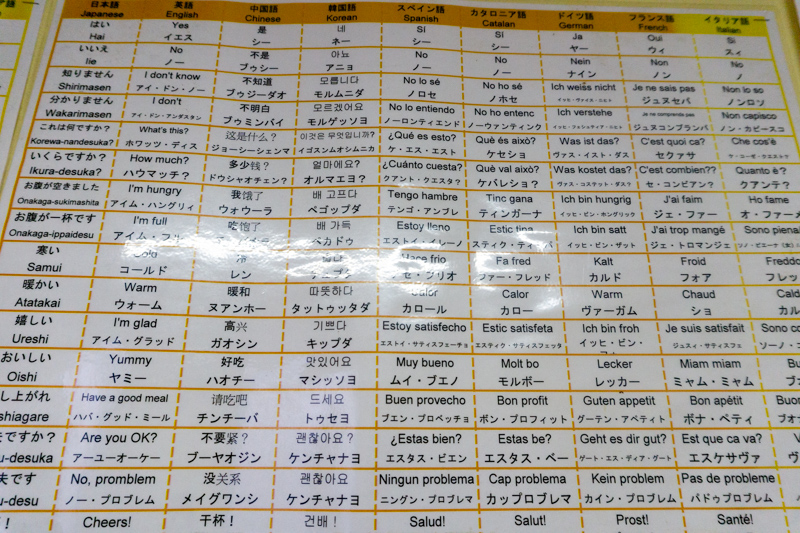 日本語 英語 中国語 韓国語 スペイン語 カタロニア語 ドイツ語 フランス語 イタリア語
Japanese English Chinese Korean Spanish Catalan German French Italian
はい Yes 是 네 Sí Sí Ja Oui Si
Hai イエス シー ネー シー シー ヤー ウィ スィ
いいえ No 不是 아뇨 No No Nein Non No
Iie ノー ブゥシー アニョ ノー ノー ナイン ノン ノ
知りません I don't know 不知道 모릅니다 No lo sé No ho sé Ich weiss nicht Je ne sais pas Non lo so
Shirimasen アイ・ドン・ノー ブゥジーダオ モルムニダ ノロセ ノホセ イッヒ・ヴァイス・ニヒト ジュヌセパ ノンロソ
分かりません I don't 不明白 모르겠어요 No lo entiendo No ho entenc Ich verstehe Je ne comprends pas Non capisco
Wakarimasen アイ・ドン・アンダスタン ブゥミンバイ モルゲッソヨ ノーロンティエンド ノーウァンティンク ジュヌコンプランパ ノン・カピースコ
これは何ですか? What's this? 这是什么? 이것은 무엇입니까? ¿Qué es esto? Què és això? Was ist das? C'est quoi ca? Che cos'è
Korewa-nandesuka? ホワッツ・ディス ジョーシーシェンマ イゴスンムオシムニカ ケ・エス・エスト ケセショ ヴァス・イスト・ダス セクァサ
いくらですか? How much? 多少钱? 얼마에요? ¿Cuánto cuesta? Què val això? Was kostet das? C'est combien?? Quanto è?
Ikura-desuka? ハウマッチ? ドウシャオチェン? オルマエヨ? クアント・クエスタ? ケバレショ? ヴァス・コステット・ダス? セ・コンビアン? クアンテ?
お腹が空きました I'm hungry 我饿了 배 고프다 Tengo hambre Tinc gana Ich bin hungrig J'ai faim Ho fame
Onaka-sukimashita アイム・ハングリィ ウォウーラ ベゴップダ テンゴ・アンブレ ティンガーナ イッヒ・ビン・ホングリック ジェ・ファー オ・ファーメ
お腹が一杯です I'm full 吃饱了 배 가득 Estoy lleno Estic tip Ich bin satt J'ai trop mangé Sono pieno
Onaka-ippaidesu アイム・フル ベカドゥ エストイ・イレーノ イッヒ・ビン・ザット ジェ・トロマンジェ
寒い Cold 冷 Hace frio Fa fred Kalt Froid Freddo
Samui コールド レン セ・フリオ ファー・フレッド カルド フォア フレッ
暖かい Warm 暖和 따뜻하다 Calor Calor Warm Chaud Caldo
Atatakai ウォーム ヌアンホー タットゥッタダ カロール カロー ヴァーガム ショ カル
嬉しい I'm glad 高兴 기쁘다 Estoy satisfecho Estic satisfeta Ich bin froh Je suis satisfait Sono co
Ureshi アイム・グラッド ガオシン キップダ エストイ・サティスフェーチョ エスティク・サティスフェッタ イッヒ・ビン・ ジュスィ・サティスフェ ソーノ・コ
おいしい Yummy 好吃 맛있어요 Muy bueno Molt bo Lecker Miam miam Bu
Oishi ヤミー ハオチー マシッソヨ ムイ・ブエノ モルボー レッカー ミャム・ミャム ブ
し上がれ Have a good meal 请吃吧 드세요 Buen provecho Bon profit Guten appetit Bon apètit Buon
shiagare ハバ・グッド・ミール チンチーバ トゥセヨ ブエン・プロベッチョ ボン・プロフィット グーテン・アペティト ボナ・ペティ
夫ですか? Are you OK? 不要紧? 괜찮아요? ¿Estas bien? Estas be? Geht es dir gut? Est que ca va? V
u-desuka アーユーオーケー ブーヤオジン ケンチャナヨ エスタス・ビエン エスタス・ベー ゲート・エス・ディア・グート エスケサヴァ
夫です No, promblem 没关系 괜찮아 Ningun problema Cap problema Kein problem Pas de probleme
u-desu ノー・プロブレム メイグワンシ ケンチャナヨ ニングン・プロブレマ カップロブレマ カイン・プロブレム パドゥプロブレム
! Cheers! 干杯! 건배! Salud! Salut! Prost! Santé!